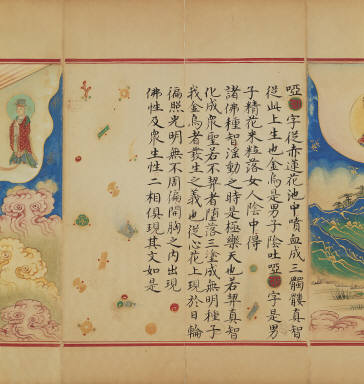 啞字從赤蓮花池中噴血成三髑髏真智
從此上生也金烏是男子陰吐啞字是男
子精花米粒落女人陰中得
諸佛種智淫動之時是極樂天也若契真智
化成眾聖若不契者墮落三塗成無明種子
我金烏者發生之我也從心花上現於日輪
徧照光明無不周徧間胸之内出現
佛性及眾生性二相俱現其文如是